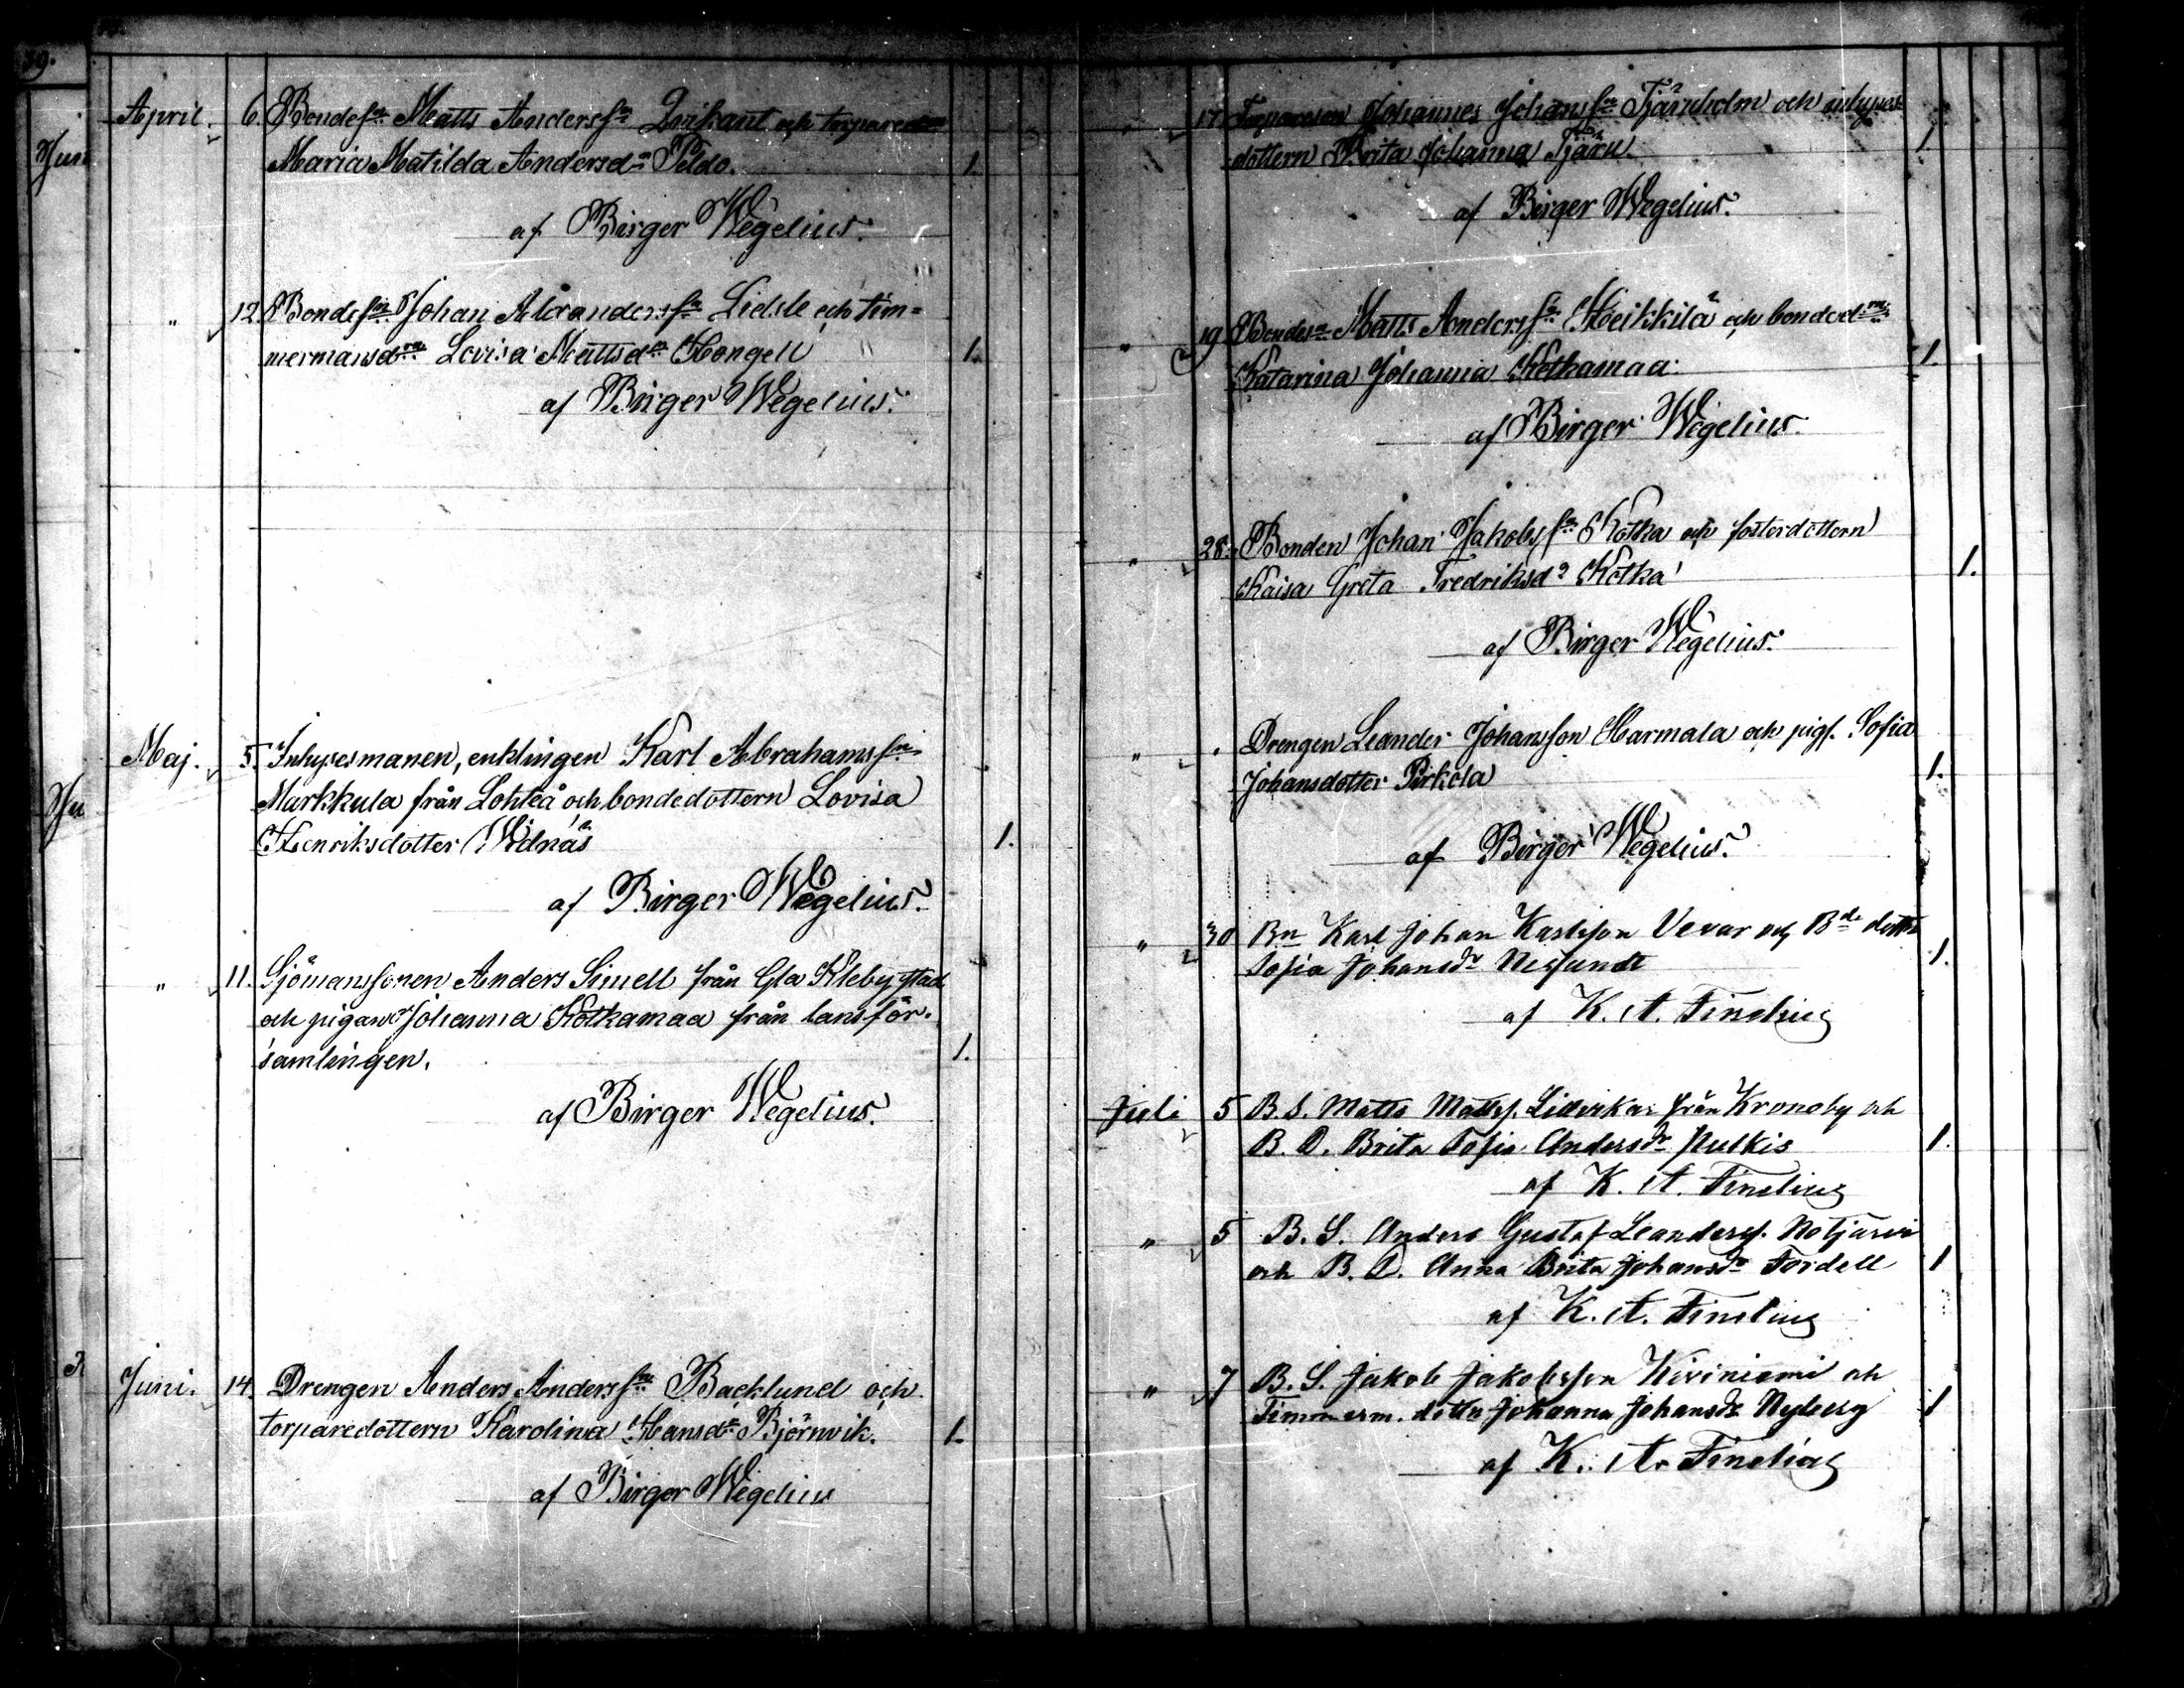 39.
April. 6. Bondesn Matts Anderssn Qvikant och torparedn
Maria Matilda Andersdn Peldo. 1.
af Birger Wegelius.
" 12. Bondesn Johan Alexanderssn Lidsle och tim=
mermansdn Lovisa Mattsdn Hongell 1.
af Birger Wegelius.
Maj. 5. Inhysesmanen, enklingen Karl Abrahamssn
Markkula från Lohteå och bondedottern Lovisa
Henriksdotter Widnäs 1.
af Birger Wegelius.
" 11. Sjömanssonen Anders Simell från Gla Kleby stad
och pigan Johanna Kotkamaa från lansför-
samlingen. 1.
af Birger Wegelius.
Juni. 14. Drengen Anders Anderssn Backlund och
torparedottern Karolina Hansdr Björnvik. 1.
af Birger Wegelius
" 17. Torpareson Johannes Johanssn Tjärnholm och inhyses
dottern Brita Johanna Tjäru. 1
af Birger Wegelius.
" 19 Bondesn Matts Anderssn Heikkilä och bondedn
Katarina Johanna Kotkamaa. 1.
af Birger Wegelius.
" 28. Bonden Johan Jakobssn Kotka och fosterdottern
Kaisa Greta Fredriksdr Kotka 1.
af Birger Wegelius.
" Drengen Leander Johansson Harmala och pig. Sofia
Johansdotter Pirkola 1.
af Birger Wegelius.
" 30 Bn Karl Johan Karlsson Vevar och Bde dottr
Sofia Johansdr Nessundt 1.
af K. A. Finelius
Juli 5 B. S. Matts Mattss. Lillvikar från Kronoby och
B. D. Brita Sofia Andersdr Pulkis 1.
af K. A. Finelius
" 5 B. S. Anders Gustaf Leanderss. Notjärvi
och B. D. Anna Brita Johansdr Tordell 1
af K. A. Finelius
" 7 B. S. Jakob Jakobsson Kiviniemi och
Timmerm. dottr Johanna Johansdr Nyberg 1
af K. A. Finelius